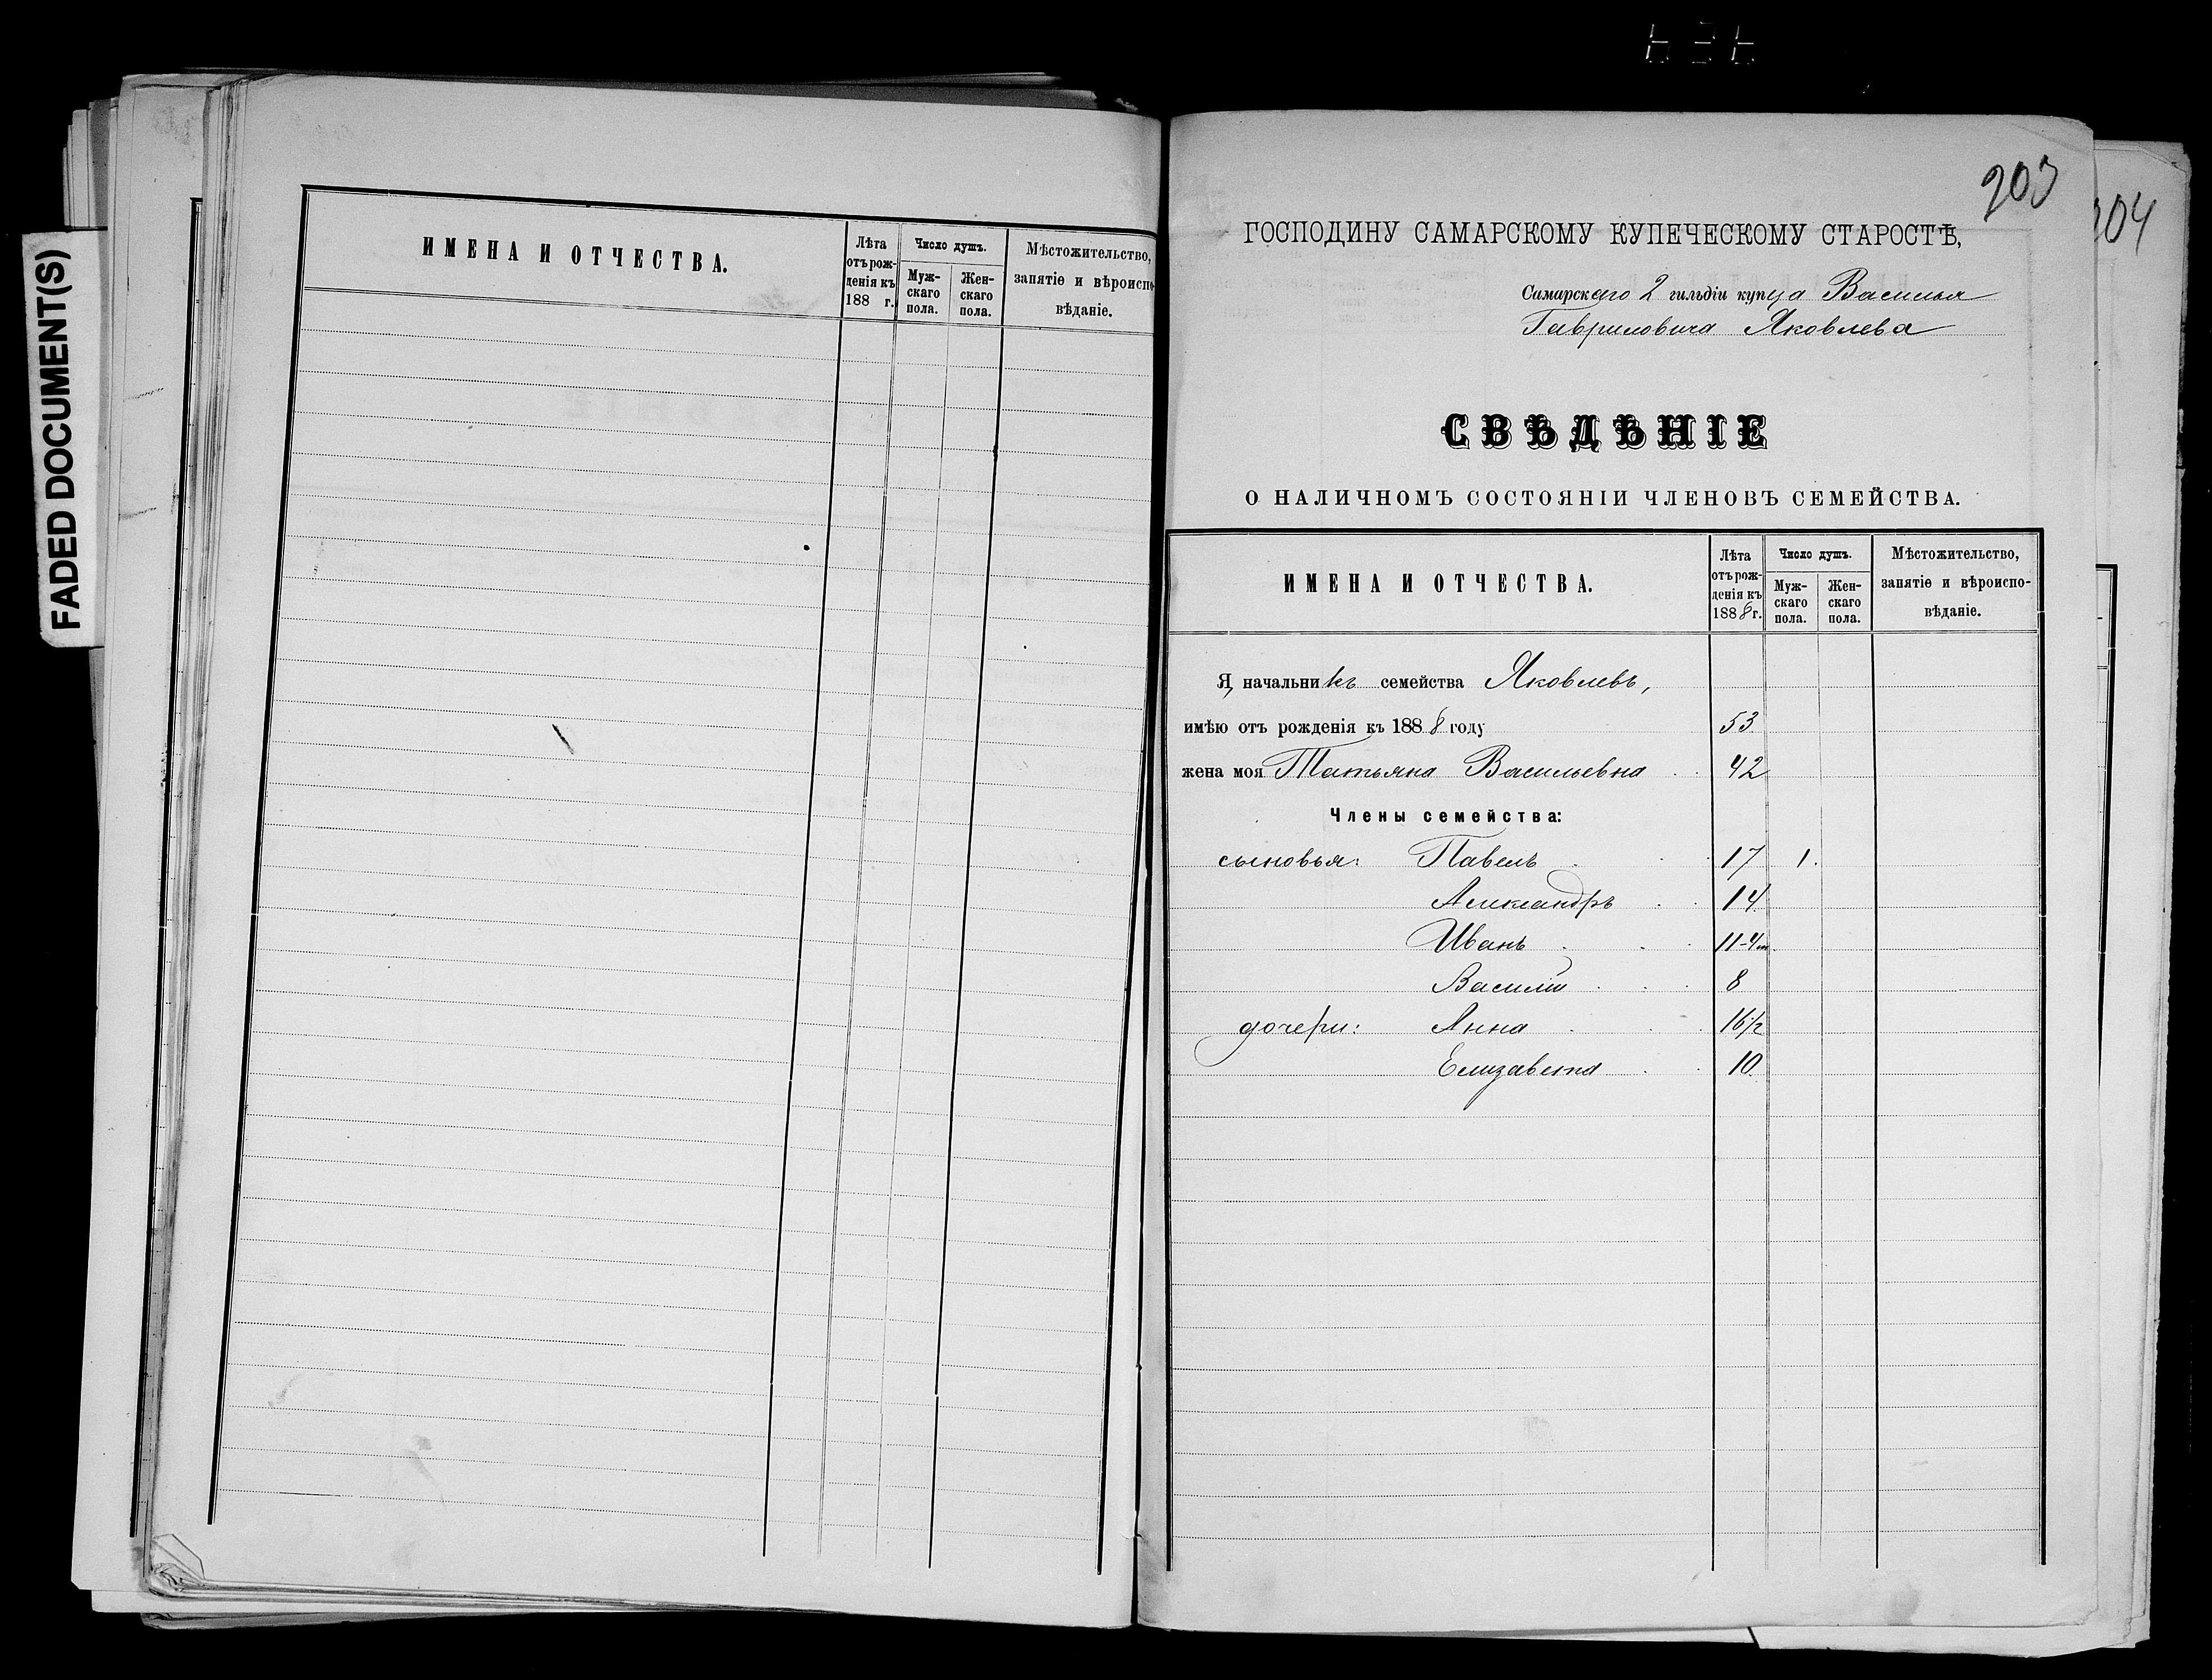 FADED DOCUMENT(S)
ИМЕНА И ОТЧЕСТВА.
Лѣта отъ рожденія къ 188 г.
Число душъ.
Мужскаго пола.
Женскаго пола.
Мѣстожительство, занятіе и вѣроисповѣданіе.
203
204
ГОСПОДИНУ САМАРСКОМУ КУПЕЧЕСКОМУ СТАРОСТѢ,
Самарскаго 2 гильдіи купца Василья
Гавриловича Яковлева
СВѢДѢНІЕ
О НАЛИЧНОМЪ СОСТОЯНІИ ЧЛЕНОВЪ СЕМЕЙСТВА.
ИМЕНА И ОТЧЕСТВА.
Лѣта отъ рожденія къ 1888 г.
Число душъ.
Мужскаго пола.
Женскаго пола.
Мѣстожительство, занятіе и вѣроисповѣданіе.
Я, начальникъ семейства Яковлевъ,
имѣю отъ рожденія къ 1888 году 53
жена моя Татьяна Васильевна 42
Члены семейства:
сыновья: Павелъ 17 1.
Александръ 14
Иванъ 11-4м
Василій 8
дочери: Анна 16 1/2
Елизавета 10